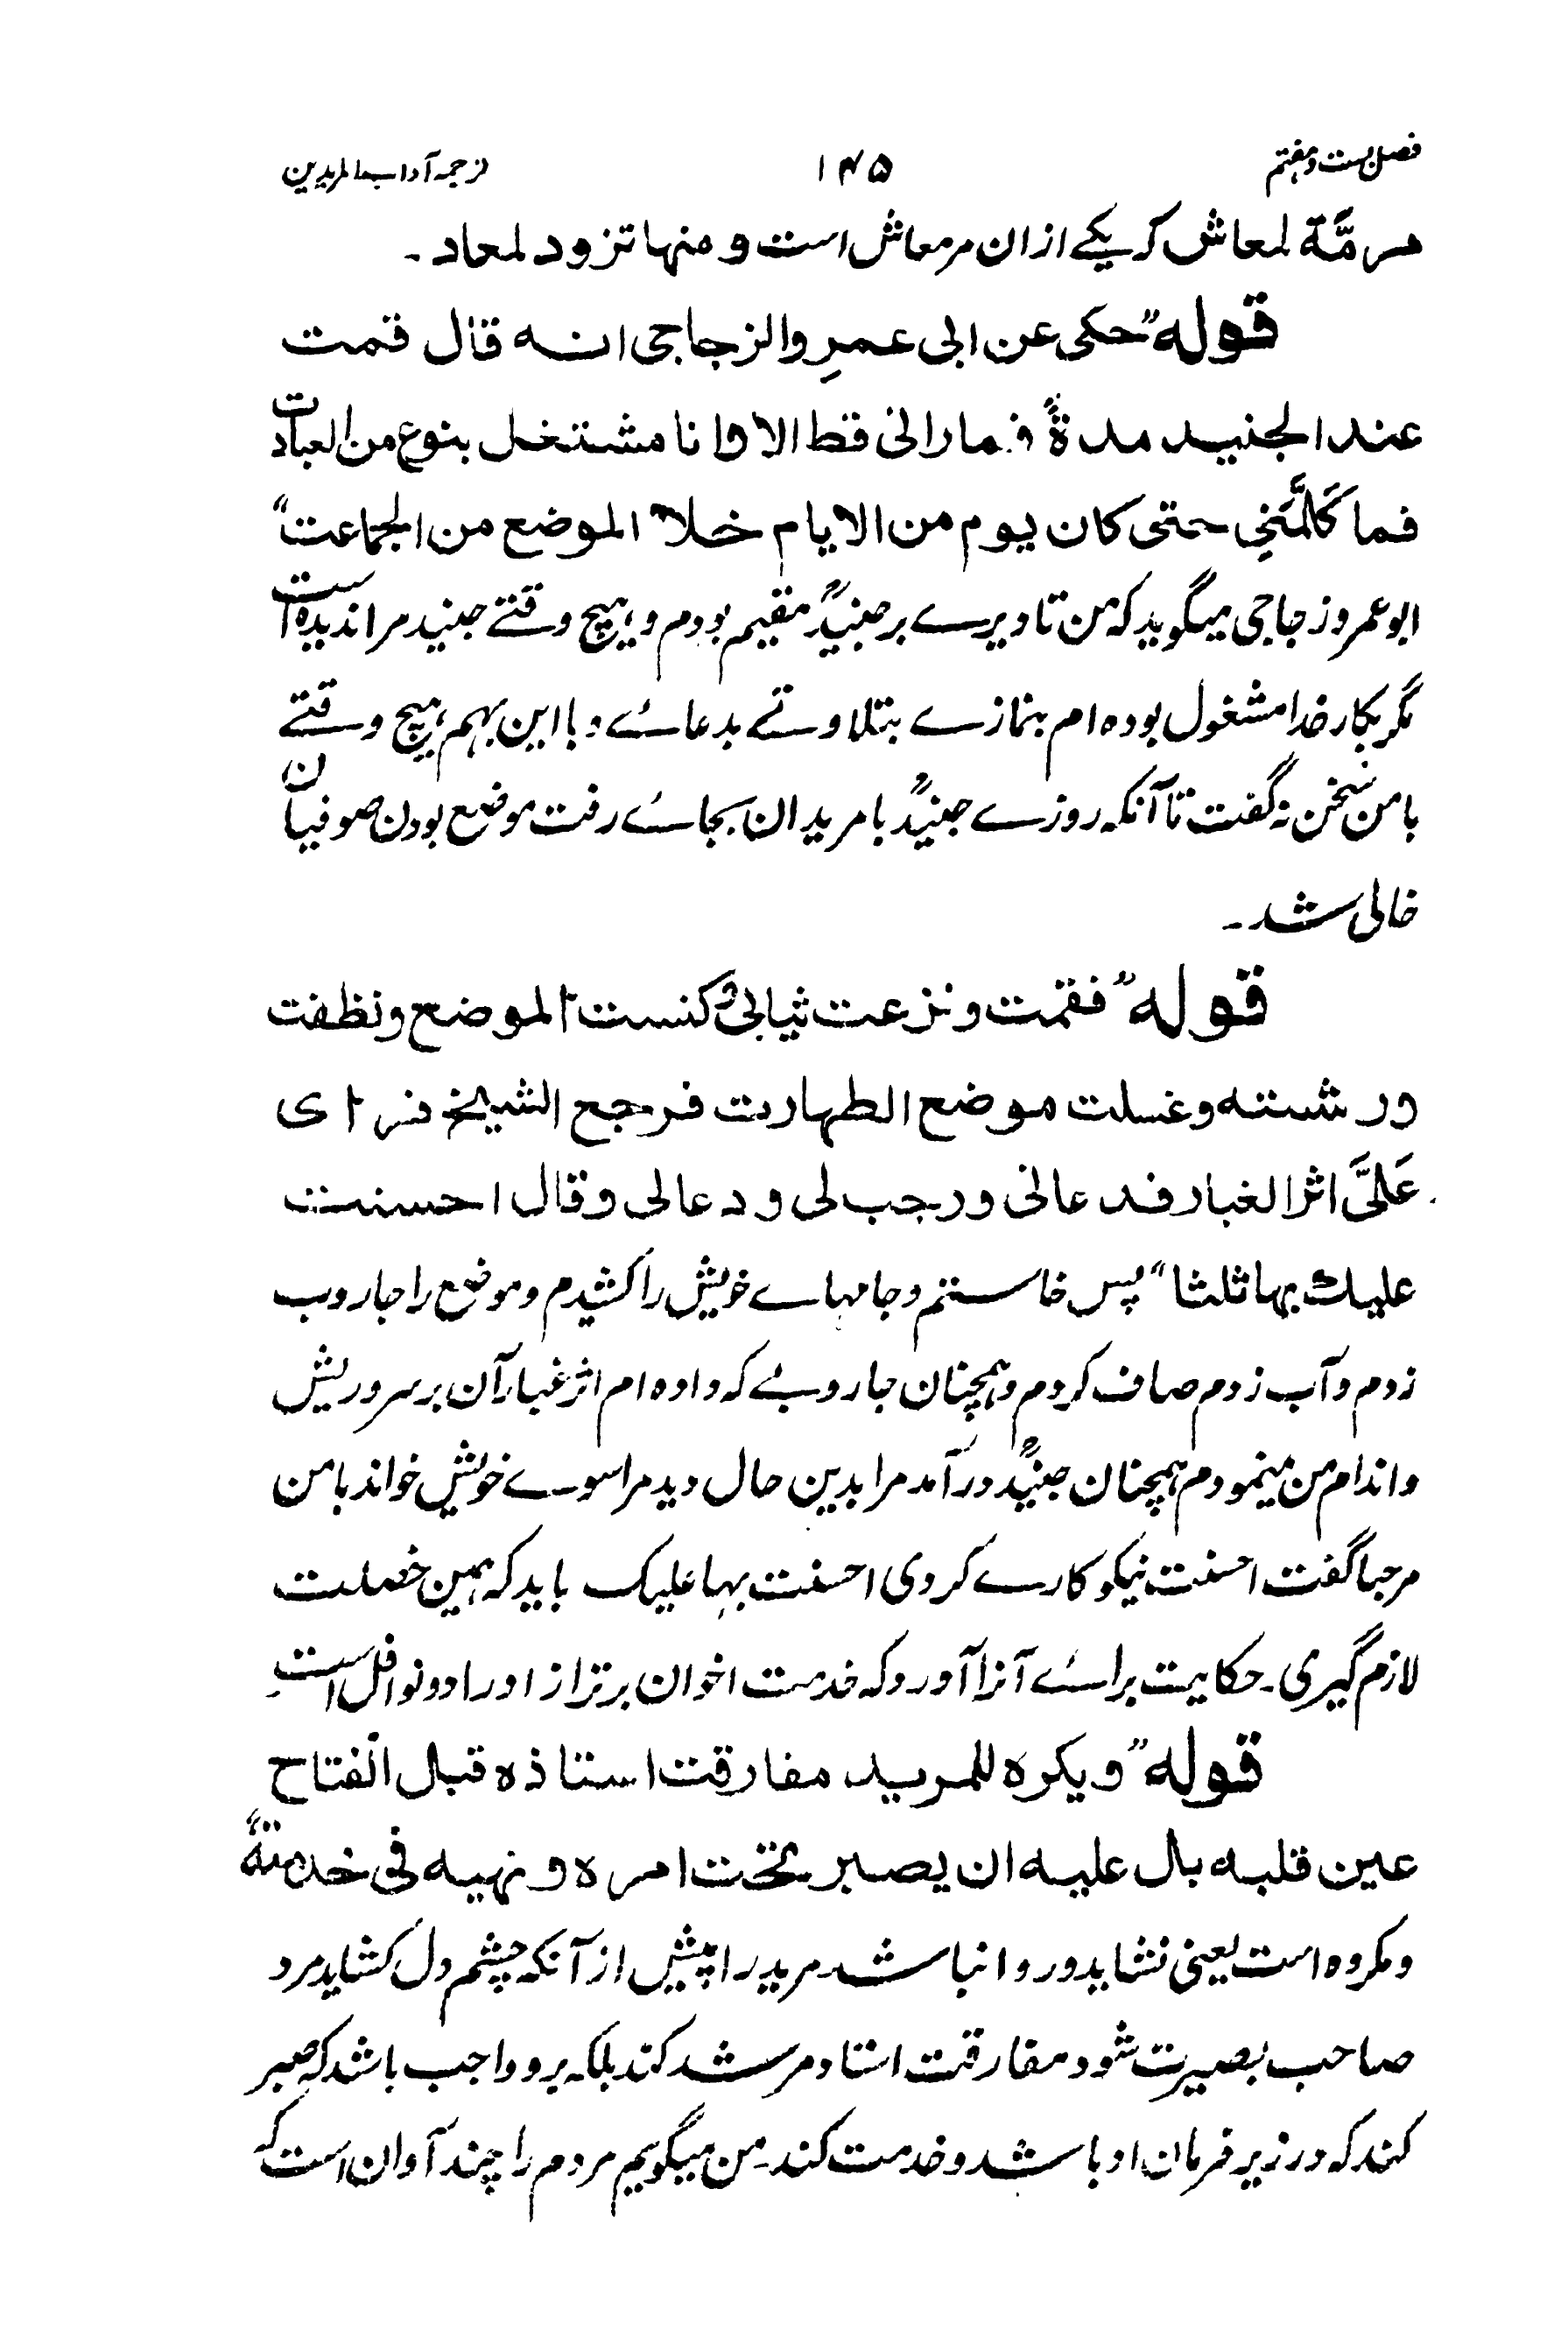 فصل بست و هفتم ۱۴۵ ترجمہ آداب المریدین
مرمَّة لمعاش کہ یکے ازان مرمعاش است و منها تزود لمعاد۔
قوله ”حکی عن ابی عمرِ والزجاجی انه قال قمت
عند الجنید مدةً فما رانی قط الا وا نا مشتغل بنوع من العبادت
فما کَلَّمَنِی حتی کان یوم من الایام خلا الموضع من الجماعت“
ابو عمرو زجاجی میگوید کہ من تا دیرے بر جنیدؒ مقیم بودم و ہیچ وقتے جنید مرا ندیدہ است
مگر بکار خدا مشغول بودہ ام بنمازے بتلاوتے بدعائے و با این ہمہ ہیچ وقتے
با من سخن نہ گفت تا آنکہ روزے جنیدؒ با مریدان بجائے رفت موضع بودن صوفیان
خالی شد۔
قوله ”فقمت و نزعت ثیابی و کنست الموضع و نظفت
ور شته و غسلت موضع الطهارت فرجع الشیخ فرای
عَلَیَّ اثر الغبار فدعانی و رجب لی و دعالی و قال احسنت
علیك بها ثلثا“ پس خاستم و جامہاے خویش را کشیدم و موضع را جاروب
زدم و آب زدم صاف کردم و ہمچنان جاروبے کہ دادہ ام اثر غبار آن بر سر و ریش
و اندام من مینمودم ہمچنان جنیدؒ در آمد مرا بدین حال دید مرا سوے خویش خواند با من
مرحبا گفت احسنت نیکو کارے کردی احسنت بہا علیک باید کہ ہمین خصلت
لازم گیری۔ حکایت برائے آنرا آورد کہ خدمت اخوان برتر از اوراد و نوافل است
قوله ”و یکرہ للمرید مفارقت استاذہ قبل انفتاح
عین قلبه بل علیه ان یصبر تحت امرہ و نهیه فی خدمتهٖ“
و مکروہ است یعنی نشاید و روا نباشد مرید را پیش از آنکہ چشم دل کشاید مرد
صاحب بصیرت شود مفارقت استاد مرشد کند بلکہ برو واجب باشد کہ صبر
کند کہ در زیر فرمان او باشد و خدمت کند۔ من میگویم مردم را چند آوان است کہ